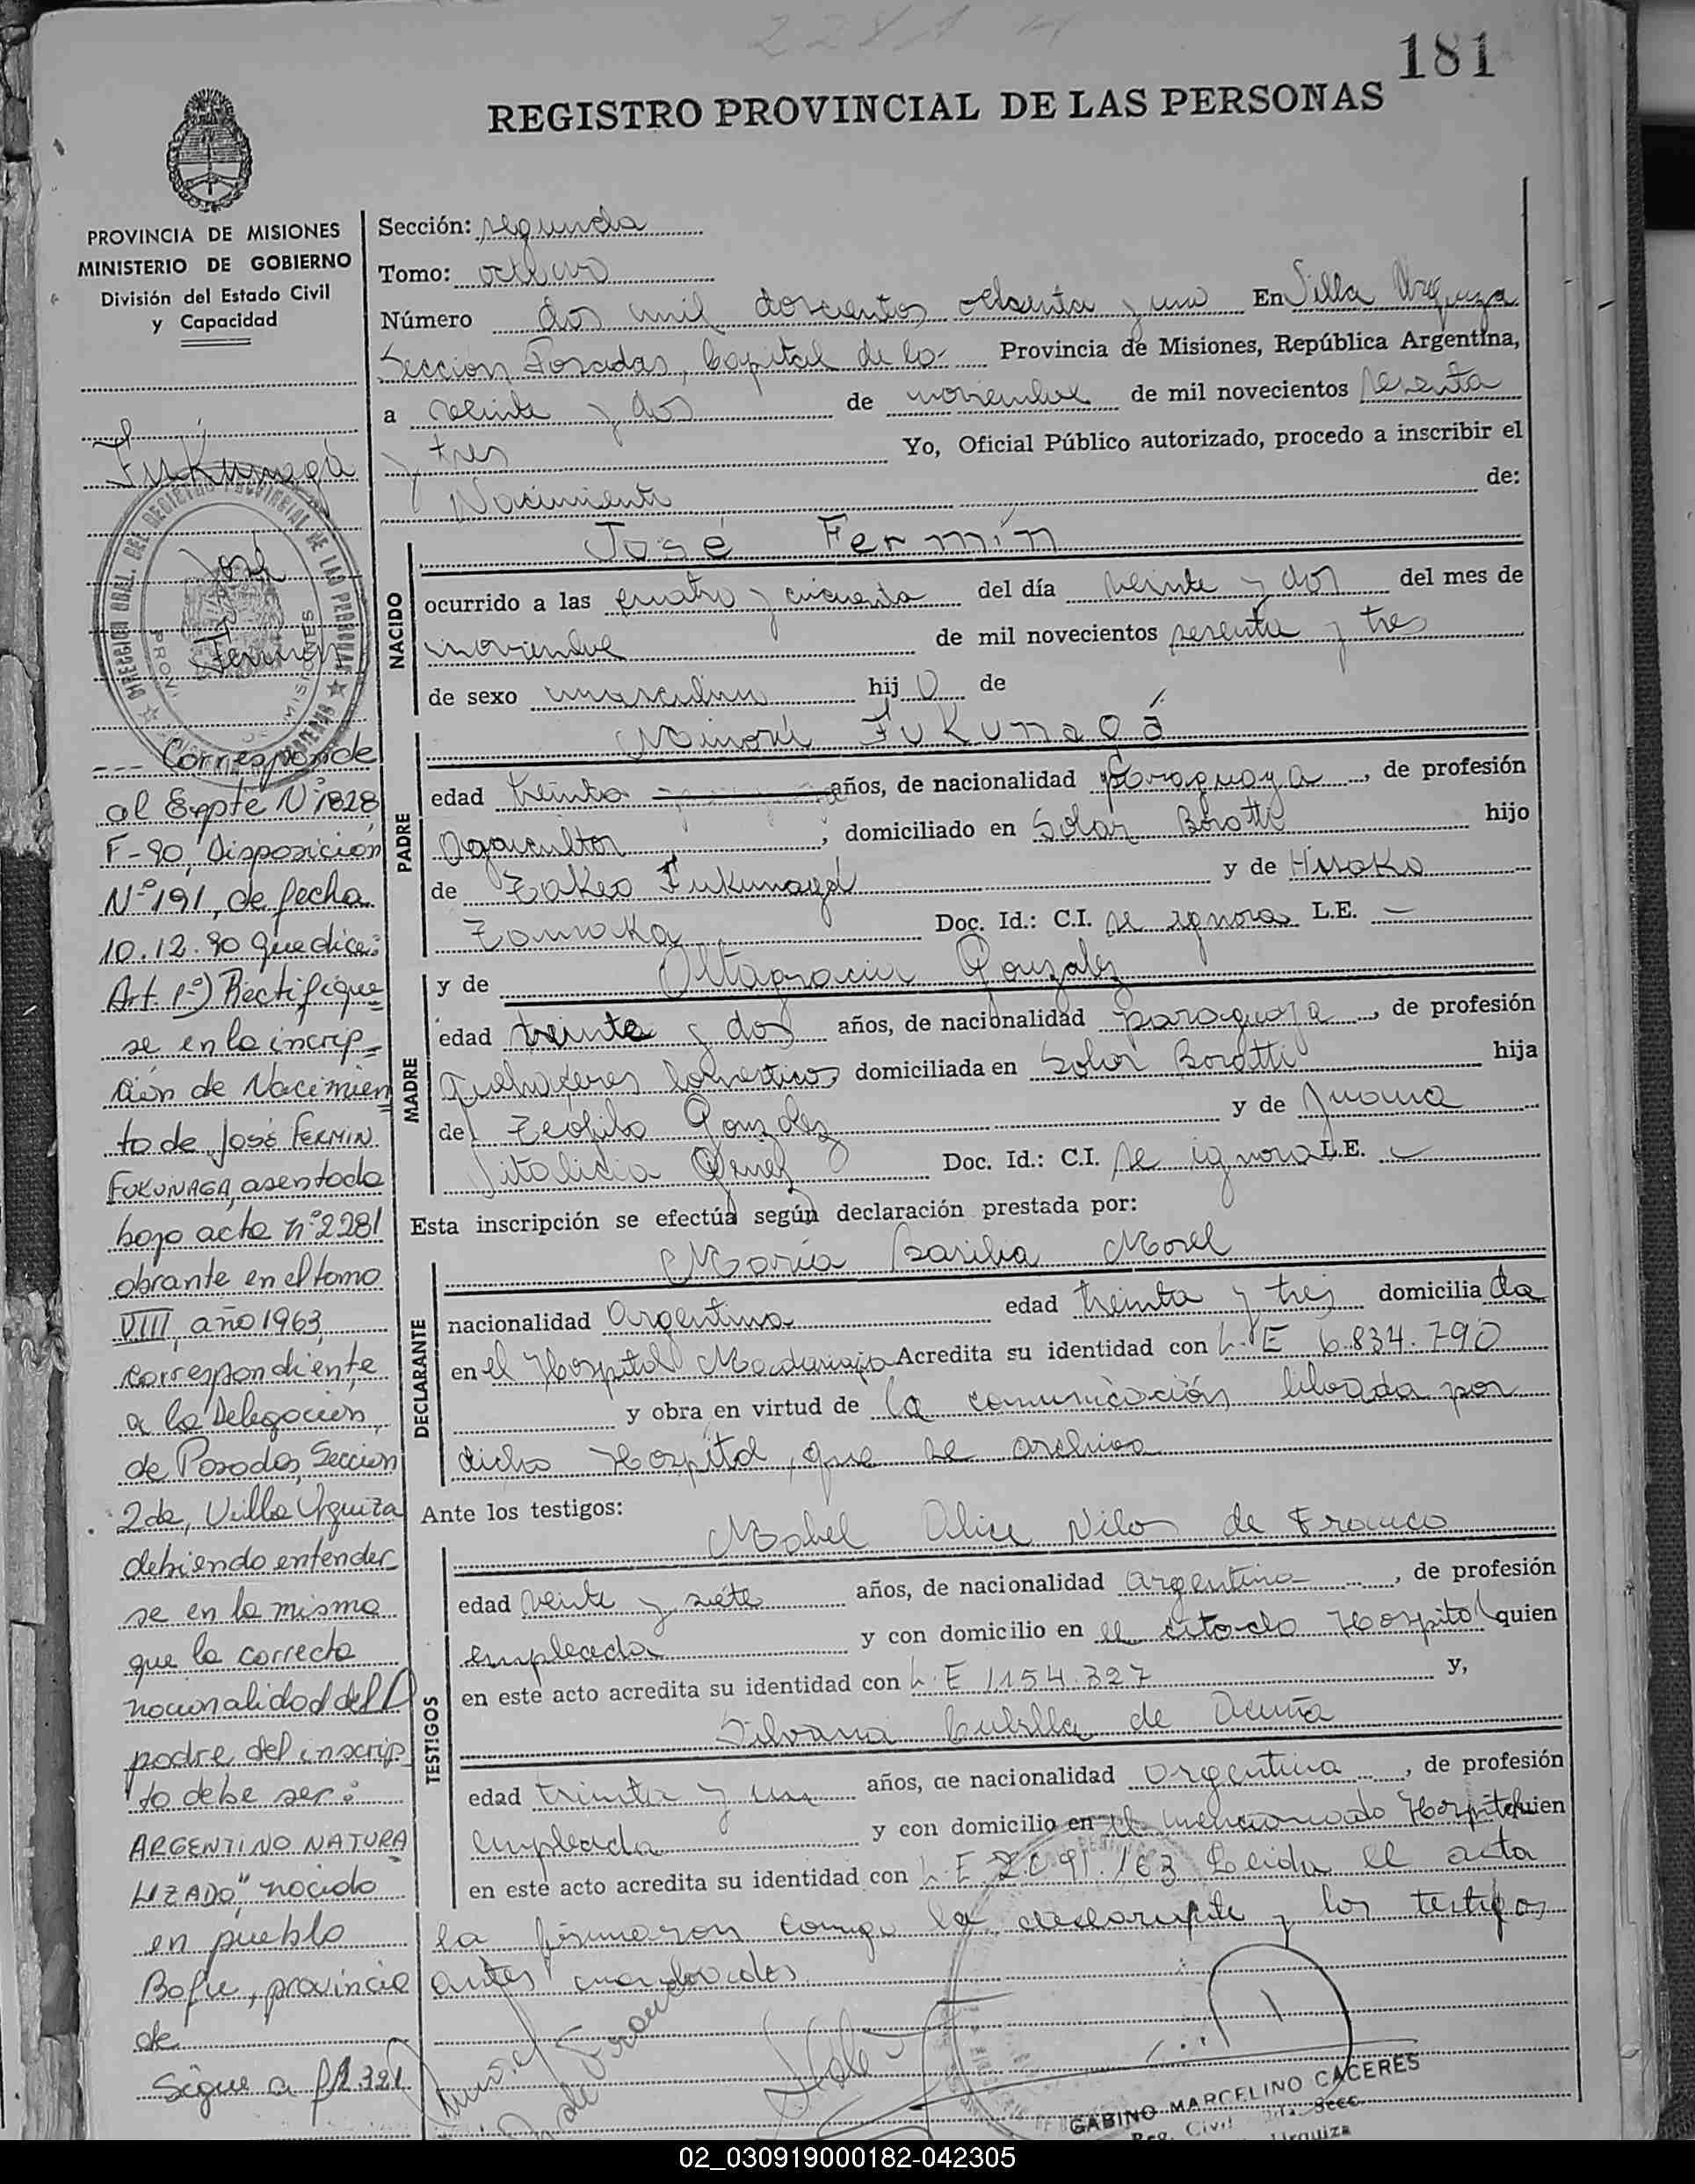 2281
181
REGISTRO PROVINCIAL DE LAS PERSONAS
PROVINCIA DE MISIONES
MINISTERIO DE GOBIERNO
División del Estado Civil
y Capacidad
Fukunaga
José
Fermin
--- Corresponde
al Expte Nº 1828
F-90, Disposición
Nº 191, de fecha
10.12.90 que dice:
Art. 1º) Rectifique
se en la incrip
ción de Nacimien
to de José FERMIN
FUKUNAGA, asentada
bajo acta nº 2281
obrante en el tomo
VIII, año 1963,
correspondiente
a la Delegación
de Posadas, Seccion
2da, Villa Urquiza
debiendo entender
se en la misma
que la correcta
nacionalidad del
padre del inscrip
to debe ser:
ARGENTINO NATURA
LIZADO" nacido
en pueblo
provincia
de
Sigue a fl 321
Sección: segunda
Tomo: octavo
Número dos mil doscientos ochenta y uno En Villa Urquiza
Seccion Posadas, Capital de la Provincia de Misiones, República Argentina,
a veinte y dos de noviembre de mil novecientos sesenta
y tres Yo, Oficial Público autorizado, procedo a inscribir el
Nacimiento de:
NACIDO
José Fermín
ocurrido a las cuatro y cincuenta del día veinte y dos del mes de
noviembre de mil novecientos sesenta y tres
de sexo masculino hijo de
PADRE
Minoru Fukunagá
edad treinta años, de nacionalidad Paraguaya, de profesión
Agricultor, domiciliado en Solar hijo
de Fukunaga y de
Doc. Id.: C.I. se ignora L.E. —
MADRE
y de Altagracia Gonzalez
edad treinta y dos años, de nacionalidad paraguaya, de profesión
Quehaceres domesticos domiciliada en Solar hija
de Teófilo Gonzalez y de Juana
Vitalicia Doc. Id.: C.I. se ignora L.E. —
Esta inscripción se efectúa según declaración prestada por:
DECLARANTE
María Basilia Morel
nacionalidad Argentina edad treinta y tres domiciliada
en el Hospital Madariaga Acredita su identidad con L.E 6.834.790
y obra en virtud de la comunicación librada por
dicho Hospital, que se archiva
Ante los testigos:
TESTIGOS
Mabel Alice de Franco
edad veinte y siete años, de nacionalidad argentina, de profesión
empleada y con domicilio en el citado Hospital quien
en este acto acredita su identidad con L.E 1154.327 y,
Silvana de Acuña
edad treinta y un años, de nacionalidad Argentina, de profesión
empleada y con domicilio en el mencionado Hospital quien
en este acto acredita su identidad con L.E 2.091.163 Leida el acta
la firmaron conmigo la declarante y los testigos
antes
de Franco
GABINO MARCELINO CACERES
02_030919000182-042305